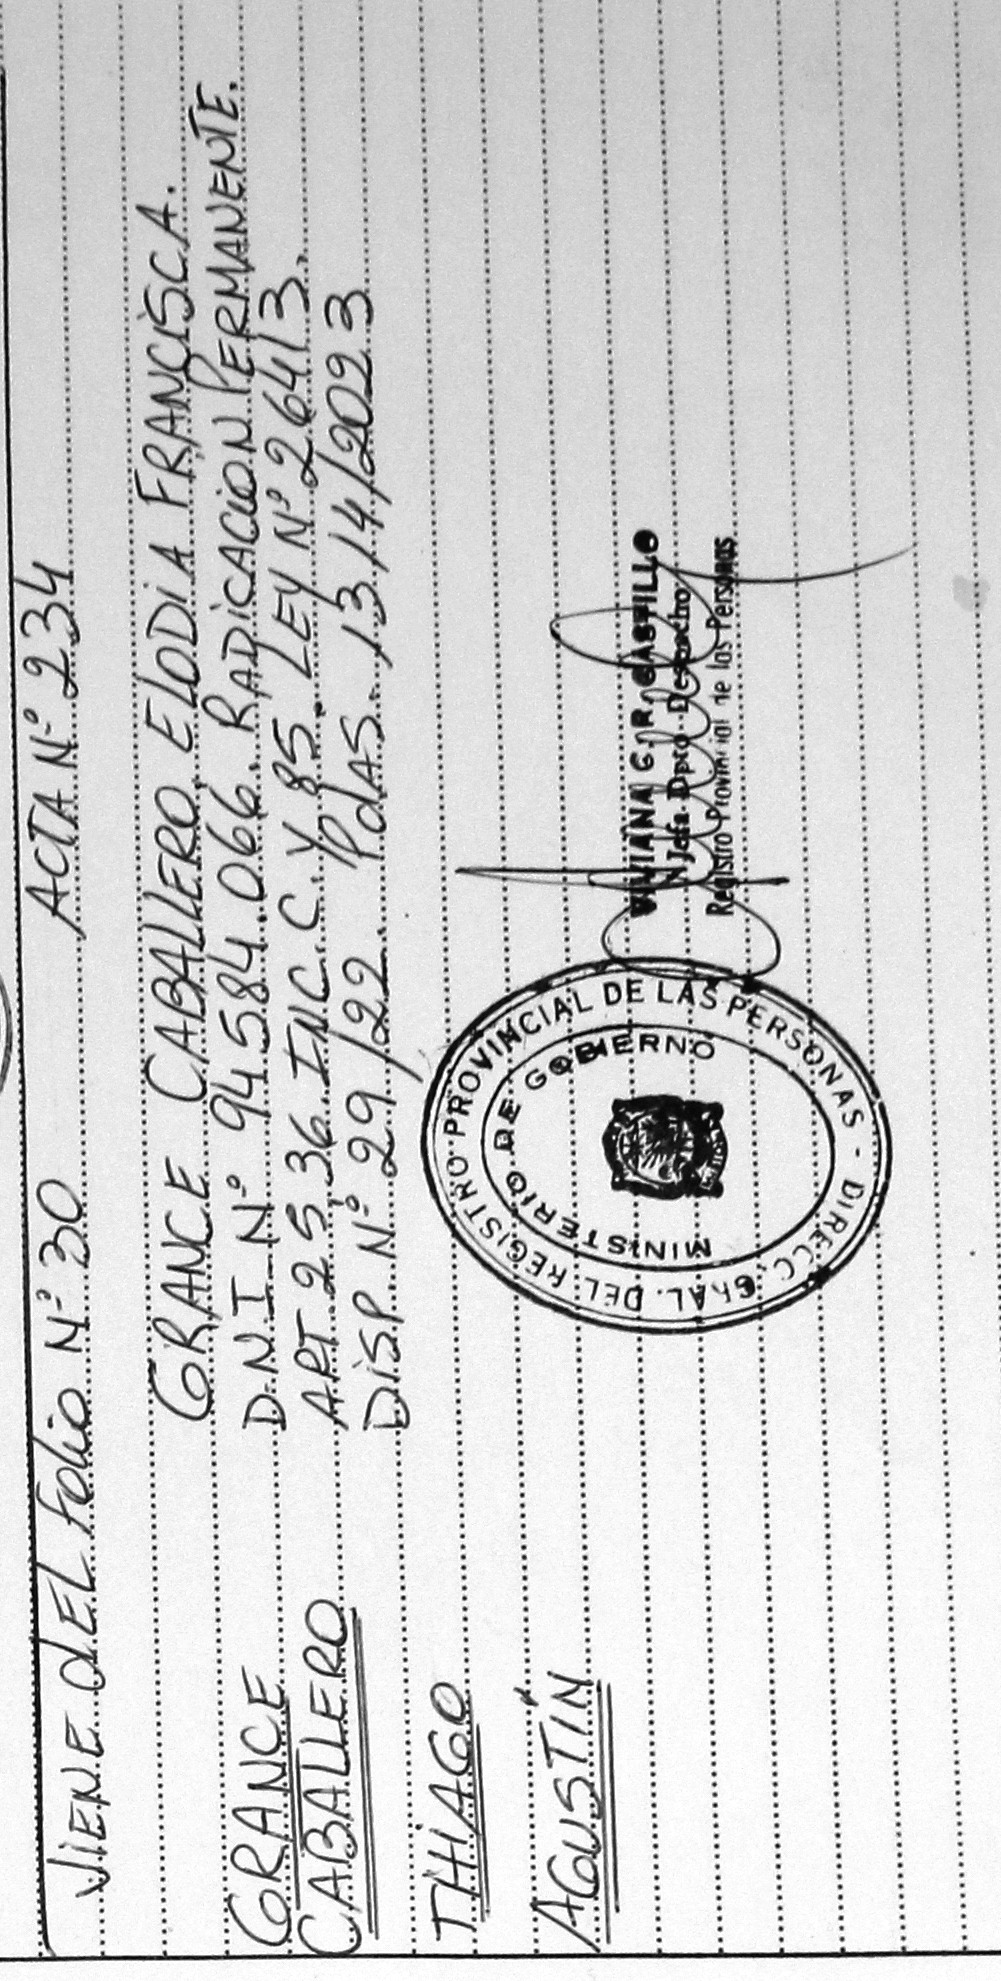 VIENE dEL Folio Nº 30 ACTA Nº 234
GRANCE CABALLERO, ELODIA FRANCISCA.
D.N.I. Nº 94.584.066. RADICACION PERMANENTE.
ART. 25.36. INC. C. Y 85. LEY Nº 26413.
DISP. Nº 29/22. Pdas. 13.14/2023
GRANCE
CABALLERO
THIAGO
AGUSTÍN
DIRECC. GRAL. DEL REGISTRO PROVINCIAL DE LAS PERSONAS -
MINISTERIO DE GOBIERNO
VIVIANA G. R. CASTILLO
Jefa Dpto Despacho
Registro Provincial de las Personas